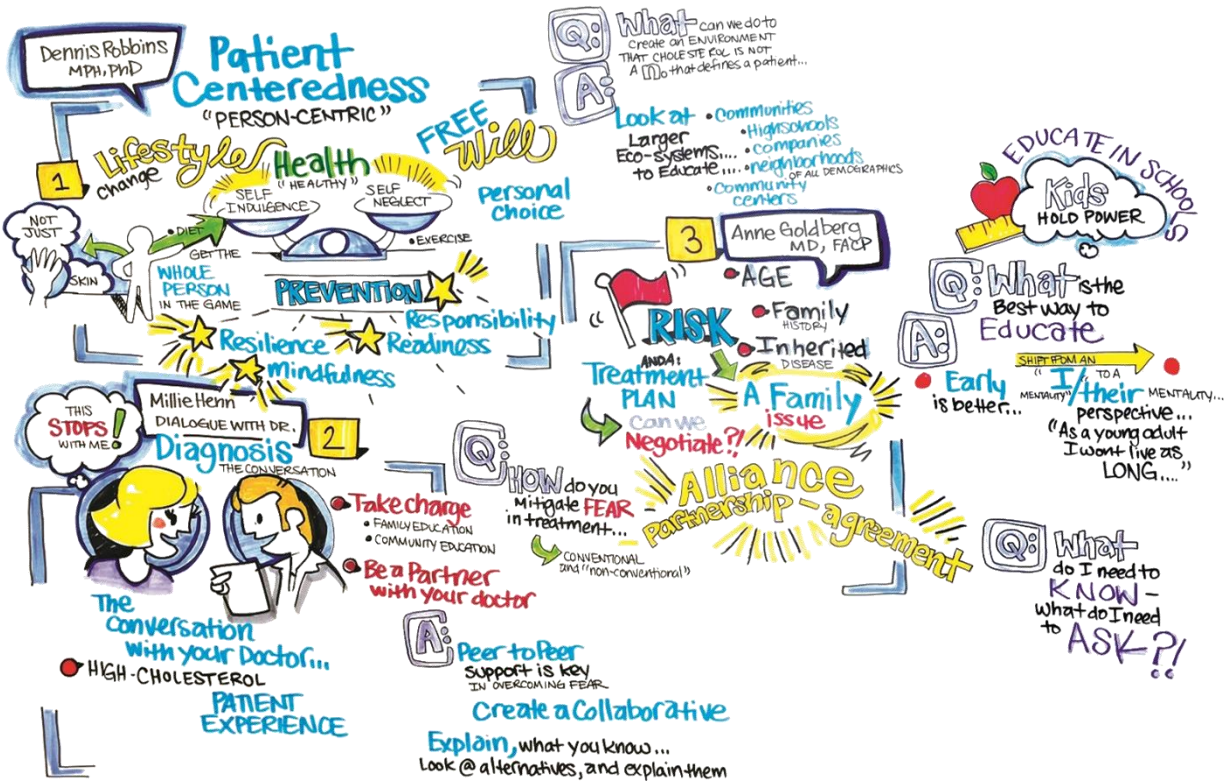 Dennis Robbins
MPH, PhD
Patient
Centeredness
"PERSON-CENTRIC"
1
Lifestyle
change
Health
"HEALTHY"
FREE
Will
SELF
INDULGENCE
SELF
NEGLECT
Personal
choice
NOT
JUST
SKIN
• DIET
• EXERCISE
GET THE
WHOLE
PERSON
IN THE GAME
PREVENTION
Responsibility
Resilience
Readiness
mindfulness
THIS
STOPS!
WITH ME!
Millie Henn
DIALOGUE WITH DR.
2
Diagnosis
THE CONVERSATION
• Take charge
• FAMILY EDUCATION
• COMMUNITY EDUCATION
• Be a Partner
with your doctor
The
Conversation
with your Doctor...
• HIGH-CHOLESTEROL
PATIENT
EXPERIENCE
Q: What can we do to
create an ENVIRONMENT
THAT CHOLESTEROL IS NOT
A no that defines a patient...
A:
Look at
Larger
Eco-systems....
to Educate....
• Communities
• Highschools
• companies
• neighborhoods
OF ALL DEMOGRAPHICS
• community
centers
3
Anne Goldberg
MD, FACP
RISK
• AGE
• Family
HISTORY
• Inherited
DISEASE
AND A:
Treatment
PLAN
can we
Negotiate?!
A Family
issue
Q: HOW do you
Mitigate FEAR
in treatment...
CONVENTIONAL
and "non-conventional"
Alliance
Partnership - agreement
A: Peer to Peer
support is key
IN OVERCOMING FEAR
Create a Collaborative
Explain, what you know...
Look @ alternatives, and explain them
EDUCATE IN SCHOOLS
Kids
HOLD POWER
Q: What is the
Best way to
Educate
A:
• Early
is better...
SHIFT FROM AN
"I" TO A
MENTALITY
/their MENTALITY...
perspective...
"As a young adult
I wont live as
LONG...."
Q: What
do I need to
KNOW -
what do I need
to ASK?!